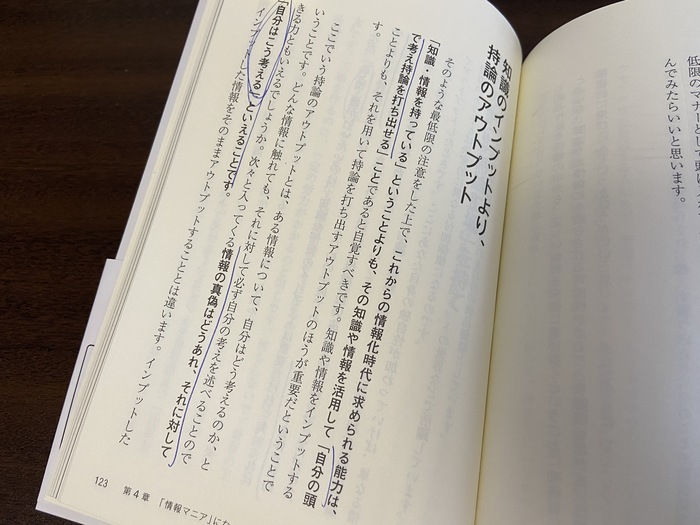 低限のマナーとして
んでみたらいいと思います。
知識のインプットより、
持論のアウトプット
そのような最低限の注意をした上で、これからの情報化時代に求められる能力は、
「知識・情報を持っている」ということよりも、その知識や情報を活用して「自分の頭
で考え持論を打ち出せる」ことであると自覚すべきです。知識や情報をインプットする
ことよりも、それを用いて持論を打ち出すアウトプットのほうが重要だということで
す。
ここでいう持論のアウトプットとは、ある情報について、自分はどう考えるのか、と
いうことです。どんな情報に触れても、それに対して必ず自分の考えを述べることので
きる力ともいえるでしょうか。次々と入ってくる情報の真偽はどうあれ、それに対して
「自分はこう考える」といえることです。
インプットした情報をそのままアウトプットすることとは違います。インプットした
123 第4章 「情報マニア」にな